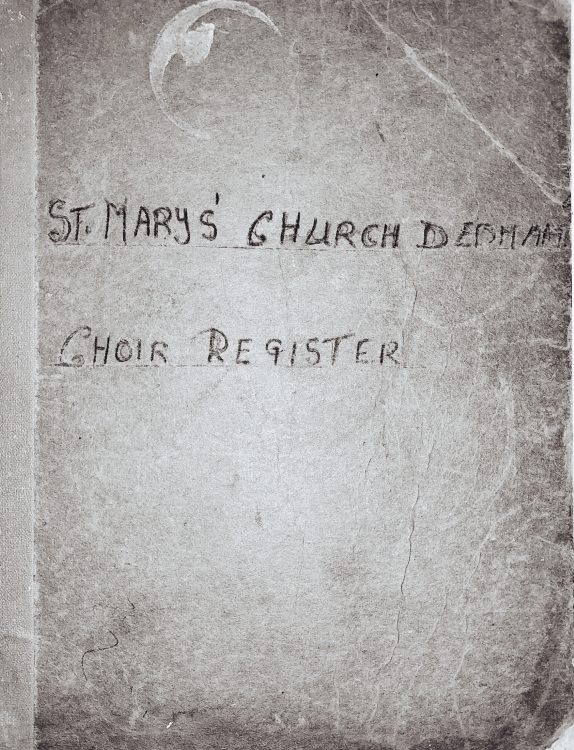 ST. MARYS' CHURCH DEDHAM
CHOIR REGISTER